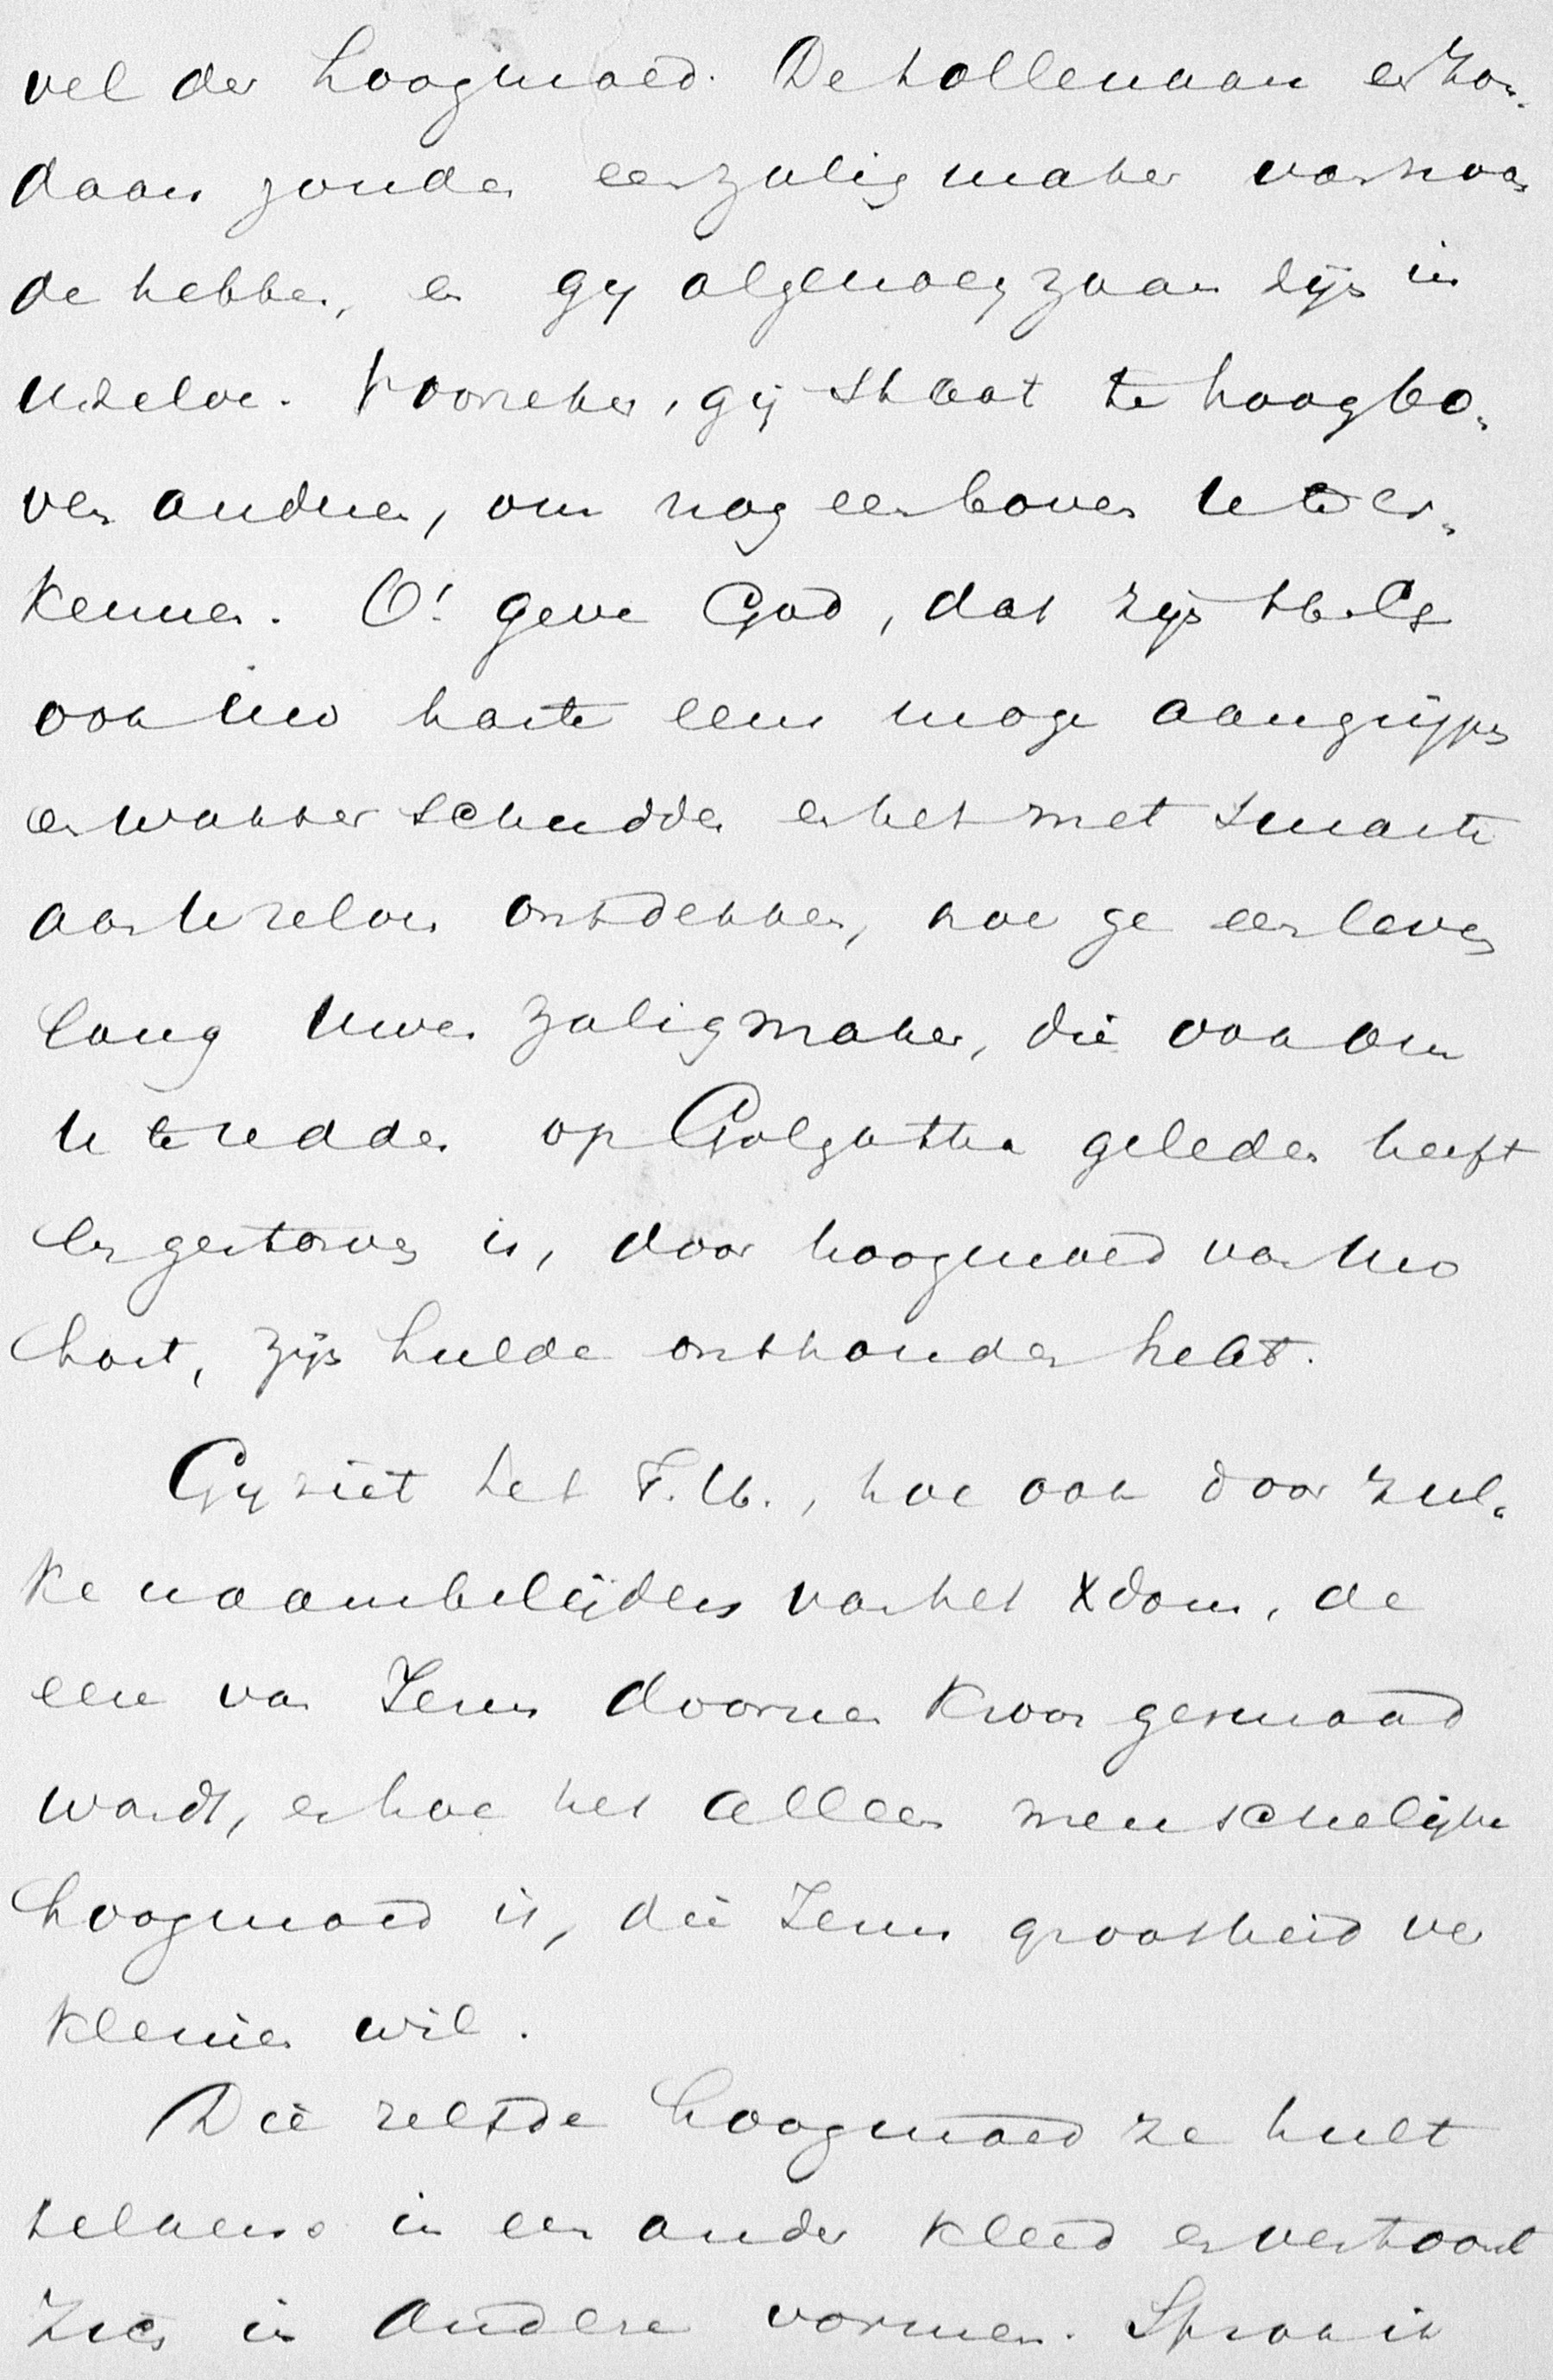 vel der hoogmoed. De tollenaar en zon-
daar zouden een zaligmaker van noo-
de hebben, en gy algenoegzaam zijn in
Uzelve. Voorzeker, gij staat te hoog bo-
ven anderen, om nog een boven U te er-
kennen. O! geve God, dat zijn
ook Uw harte eens moge aangrijpen
en wakker schudden en het met smarte
aan Uzelven ontdekken, hoe ge een leven
lang Uwen Zaligmaker, die ook om
U te redden op Golgotha geleden heeft
en gestorven is, door hoogmoed van Uw
hart, zijn hulde onthouden hebt.
Gy ziet het T. U., hoe ook door zul-
ke naambelijders van het Xdom, de
eere van Jezus doornen kroon gesmaad
wordt, en hoe het alleen menschelijke
hoogmoed is, die Jezus grootheid ver
kleinen wil.
Die zelfde hoogmoed ze hult
telkens in een ander kleed en vertoont
zich in andere vormen. Sprak ik